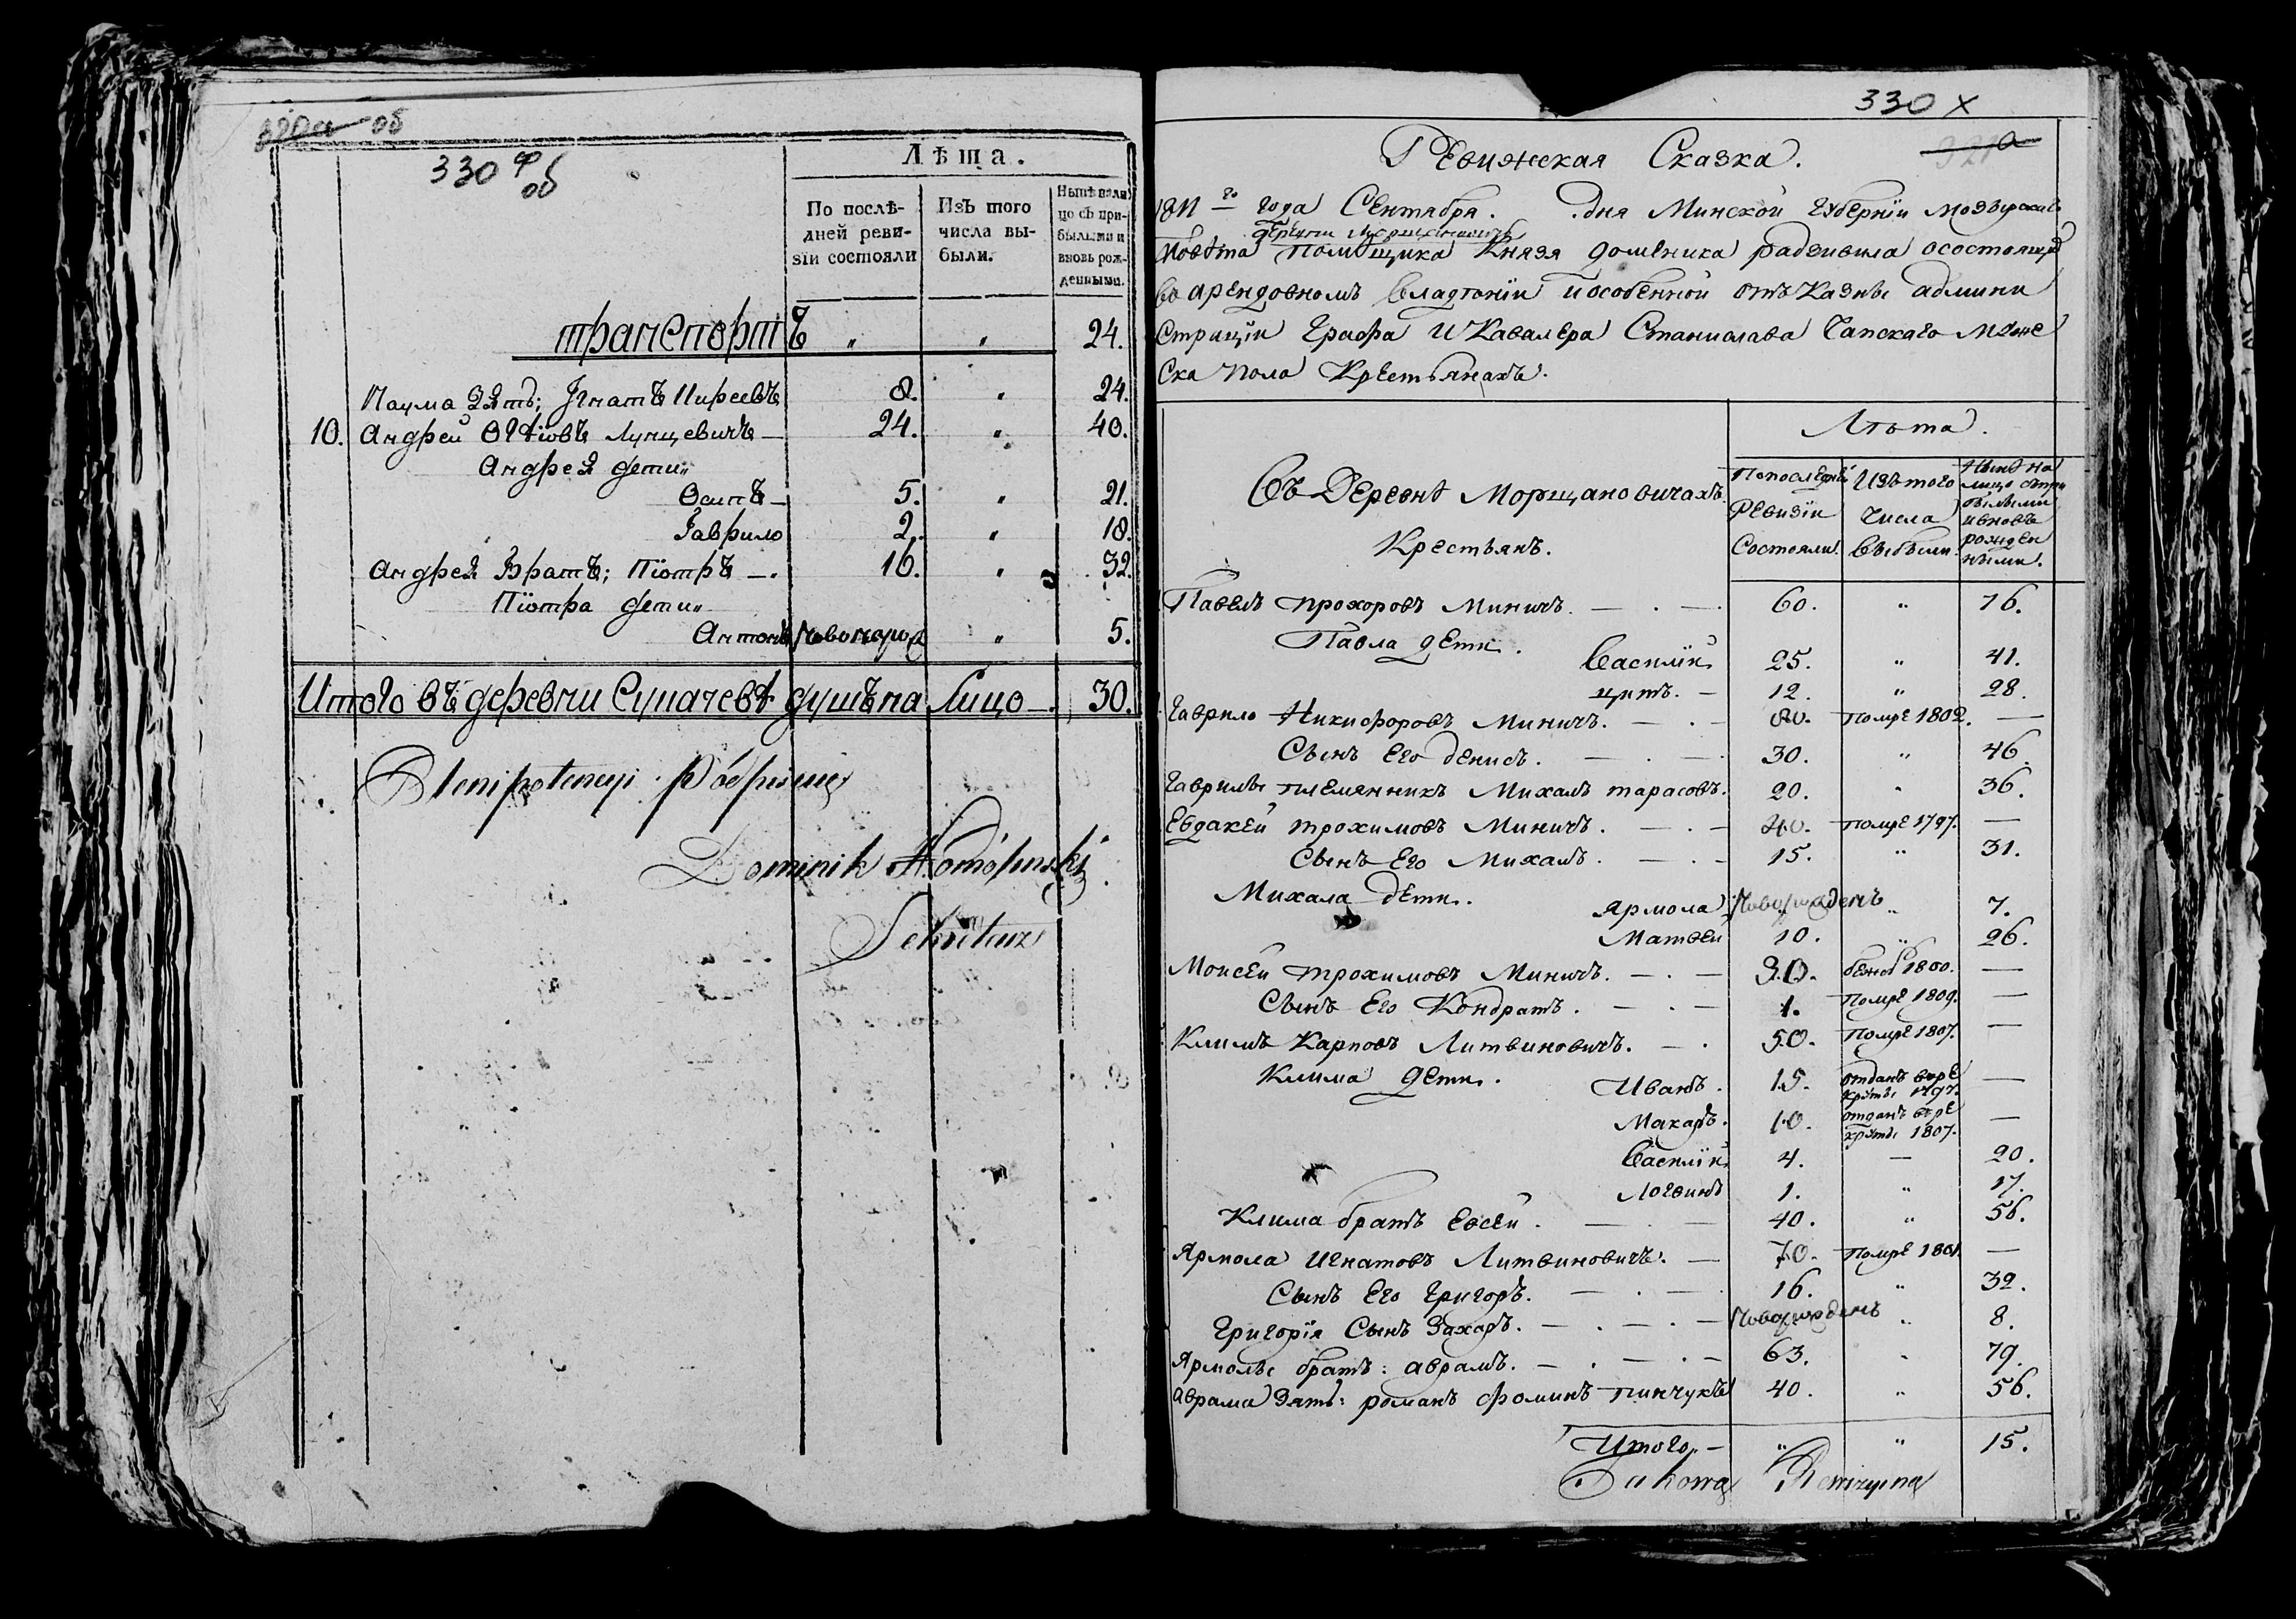 330 ф об
Лѣта.
По послѣ-
дней реви-
зіи состояли
Изъ того
числа вы-
были.
Нынѣ нали
цо съ при-
былыми и
вновь рож-
денными.
транспортъ „ „ 24.
Наума Зять; Игнатъ 8. „ 24.
10. Андрей Лунцевичъ — 24. „ 40.
Андрея дети„
Осипъ — 5. „ 21.
Гаврило 2. „ 18.
Андрея Братъ; Піотръ —. 16. „ 32.
Піотра дети„
Антонъ „ 5.
Итого въ деревни душъ на Лицо — 30.
Dominik
Sekretarz
330 х
Ревижская Сказка.
1811го года Сентября . . дня Минской губерніи Мозырскаго
деревни Морщановичъ
Повѣта Помѣщика Князя доминика радзивила осостоящи
во арендовномъ владѣніи иособенной отъ Казны админи
страціи Графа И Кавалера Станислава Чапскаго Муже
ска пола Крестьянахъ.
Въ Деревнѣ Морщановичахъ
Крестьянъ.
Лѣта.
Попоследнѣй
Ревизіи
Состояли.
Изъ того
Числа
Выбыли.
Нынѣ на
лицо спри
былыми
ивновь
рожден
ными.
Павелъ прохоровъ Миничъ. — . —. 60. „ 76.
Павла дети.
Василій 25. „ 41.
— 12. „ 28.
Гаврило Никифоровъ Миничъ. — . — 80. помре 1802. —
Сынъ Его денисъ. — . — 30. „ 46.
Гаврилы племянникъ Михалъ тарасовъ. 20. „ 36.
Евдакей трохимовъ Миничъ. — . — 40. помре 1797. —
Сынъ Его Михалъ. — . — 15. „ 31.
Михала дети.
Ярмола Новорожденъ „ 7.
Матвей 10. „ 26.
Моисей трохимовъ Миничъ. — . — 30. 1800. —
Сынъ Его Кондратъ. — . — 1. Помре 1809. —
Климъ Карповъ Литвиновичъ. — . 50. Помре 1807. —
Клима дети.
Иванъ. 15. отданъ въре
круты 1797. —
Макаръ. 10. отданъ въре
круты 1807. —
Василій 4. — 20.
Логвинъ 1. „ 17.
Клима братъ Евсей. — . — 40. „ 56.
Ярмола Игнатовъ Литвиновичъ. — 70. помре 1801. —
Сынъ Его Григоръ. — . — 16. „ 32.
Григорія Сынъ Захаръ. — . — . — Новорожденъ „ 8.
Ярмолы братъ: аврамъ. — . — . — 63. „ 79.
Аврама Зять: романъ фоминъ пинчукъ 40. „ 56.
Итого, — „ „ 15.
Takową